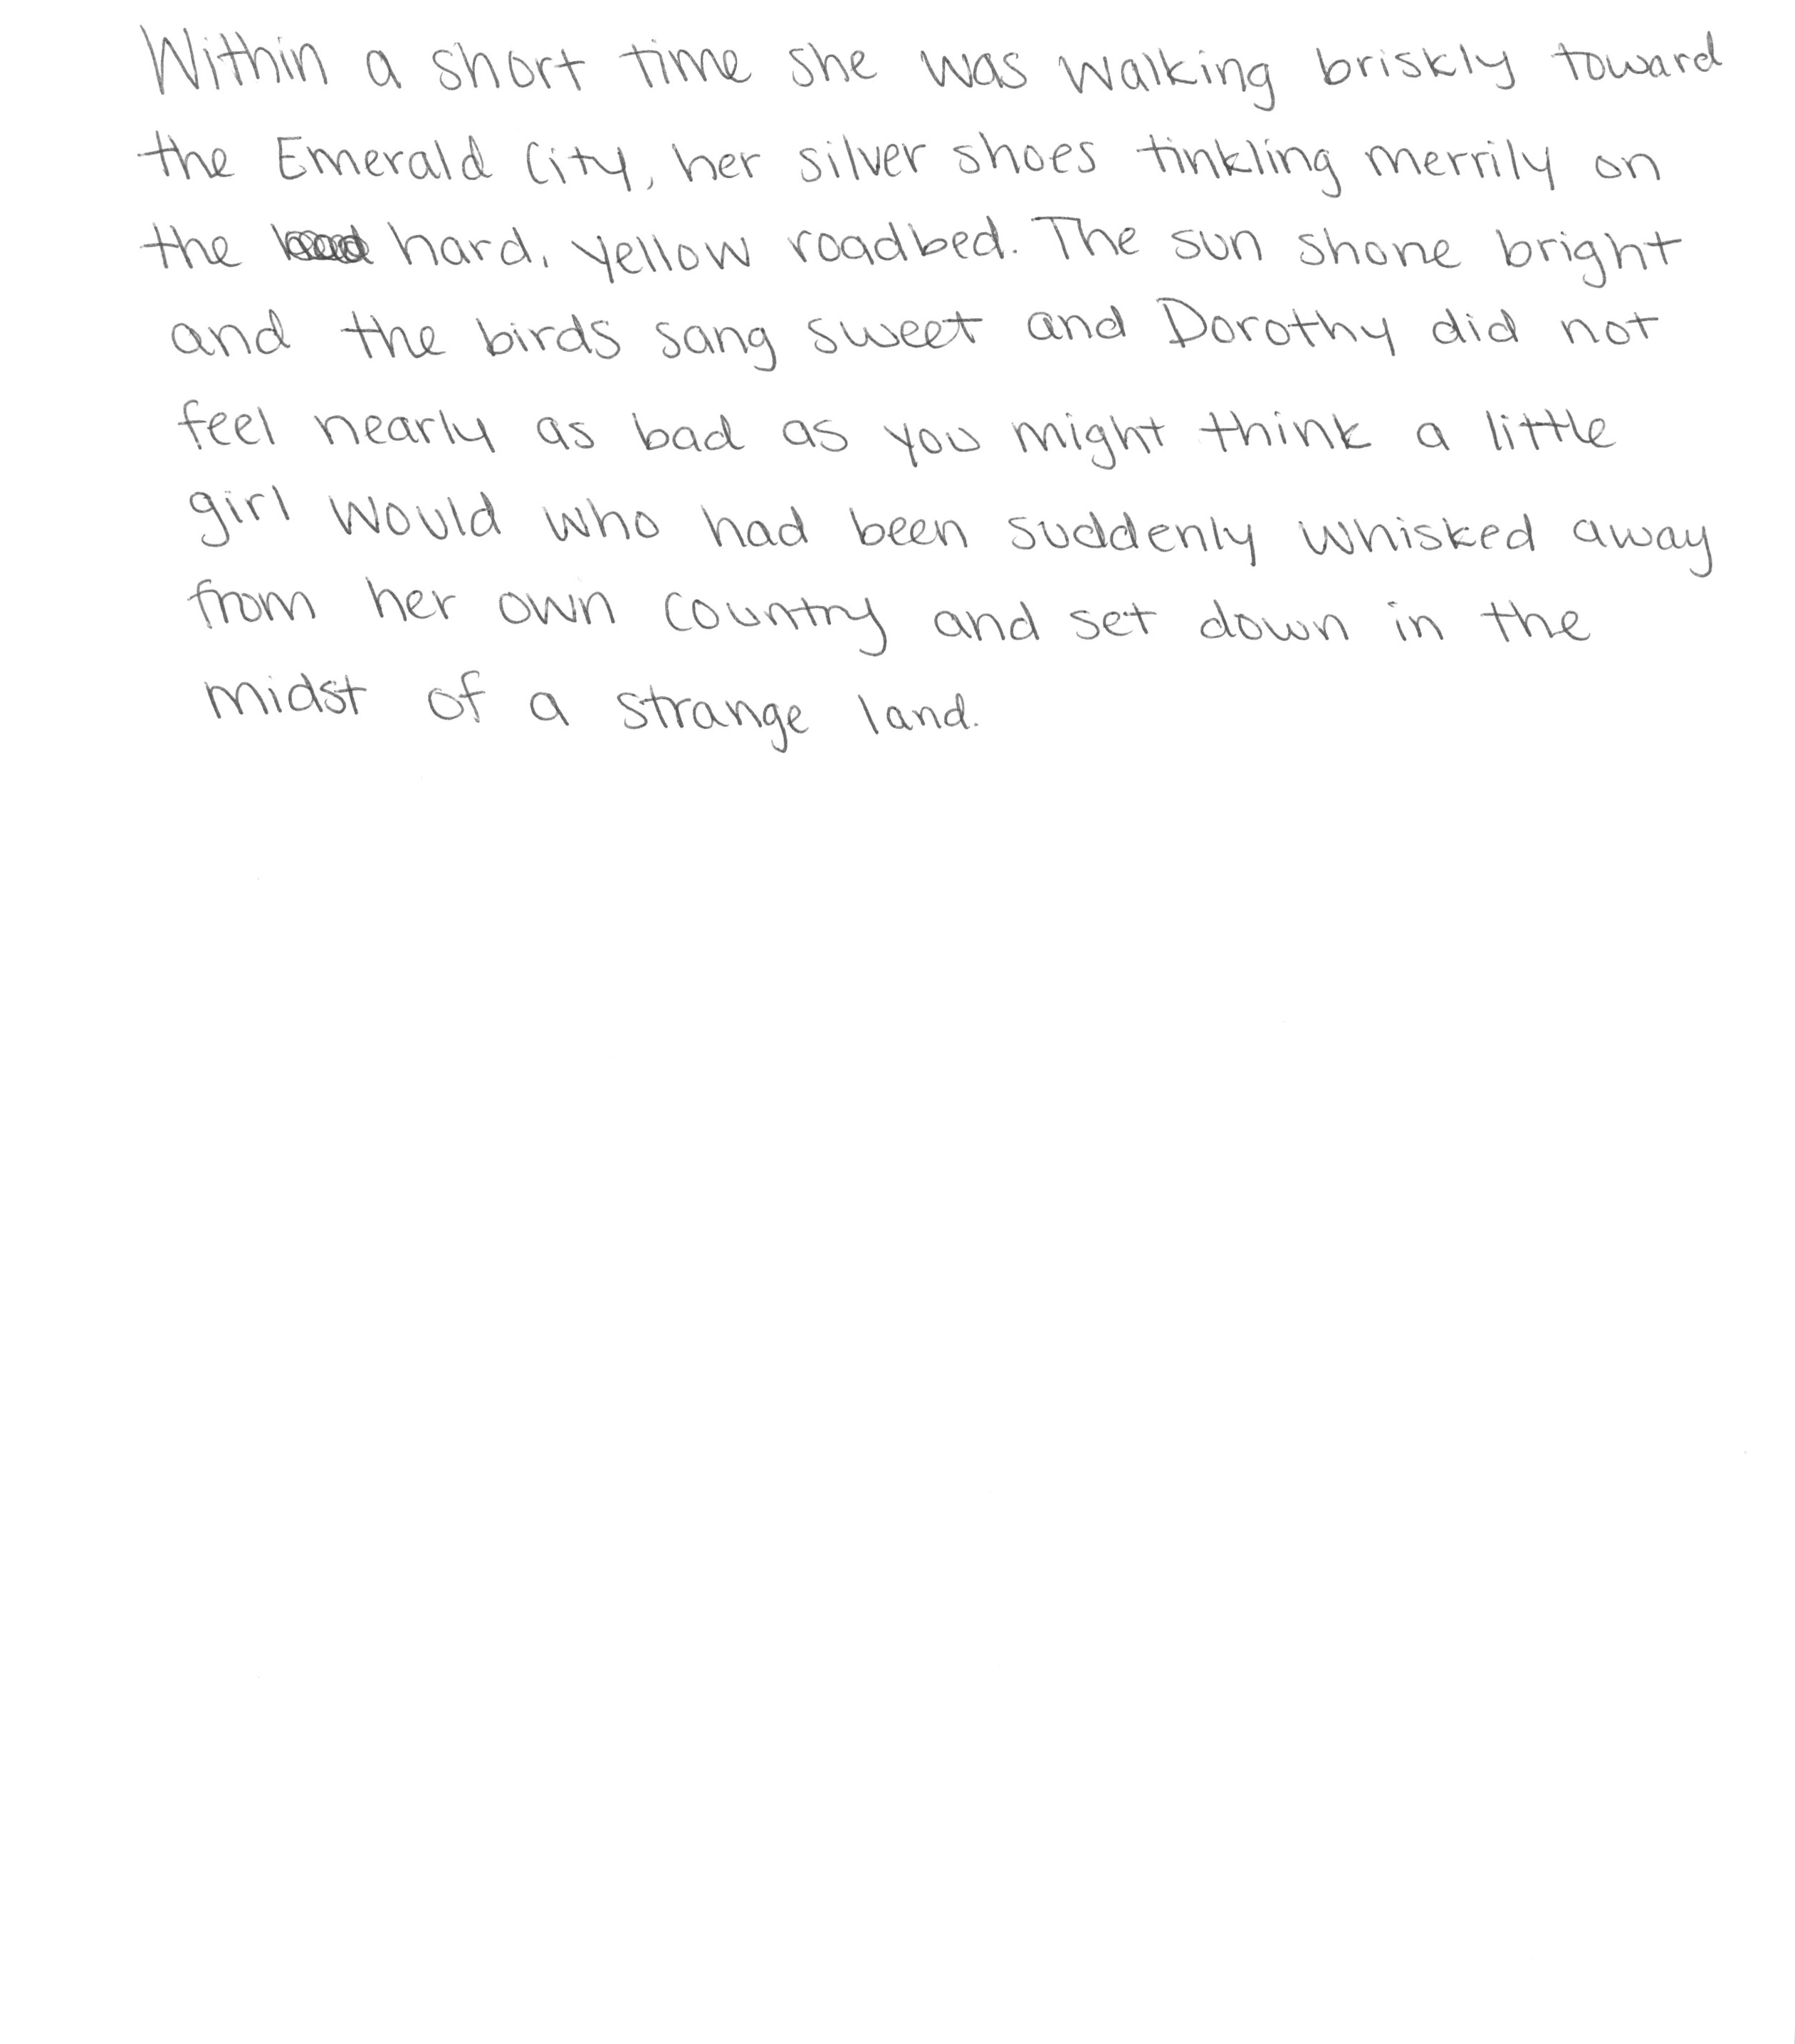 Within a short time she was walking briskly toward
the Emerald City, her silver shoes tinkling merrily on
the hard, yellow roadbed. The sun shone bright
and the birds sang sweet and Dorothy did not
feel nearly as bad as you might think a little
girl would who had been suddenly whisked away
from her own country and set down in the
midst of a strange land.